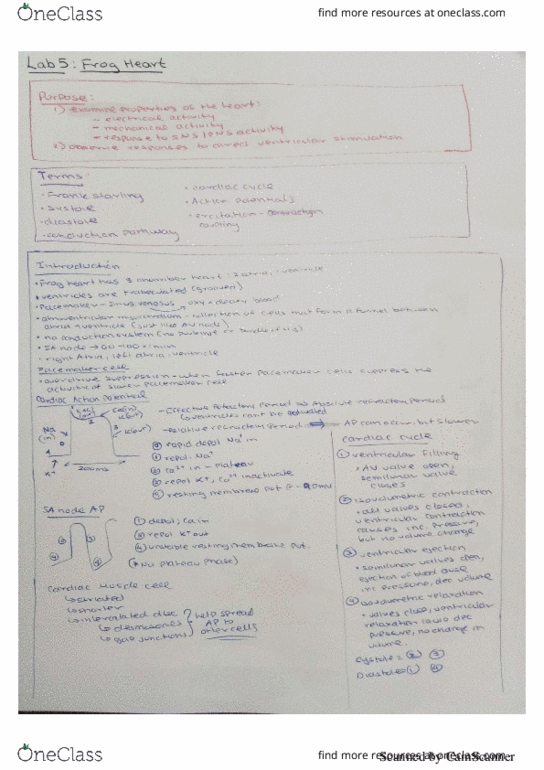 OneClass
find more resources at oneclass.com
Lab 5: Frog Heart
Purpose:
1) examine properties of the heart:
- electrical activity
- mechanical activity
- response to SNS/PNS activity
2) observe responses to direct ventricular stimulation
Terms:
• Frank starling
• systole
• diastole
• conduction pathway
• cardiac cycle
• Action potentials
• excitation - contraction
coupling
Introduction
• Frog heart has 3 chamber heart: 2 atria, 1 ventricle
• ventricles are trabeculated (grooves)
• Pacemaker - sinus venosus, oxy + deoxy blood
collection of cells that form a funnel between
atria & ventricle (just like AV node)
• no conduction system
• SA node → 60 - 80 /min
• right Atria, left atria, ventricle
Pacemaker cell
• overdrive suppression - when faster pacemaker cells suppress the
activity of slower pacemaker cell
Cardiac Action Potential
Na
(in)
0
2
3
4
K+
200ms
- Effective refractory period → Absolute refractory period
- Relative refractory period → AP can occur but slower
⓪ rapid depol Na+ in
① repol. Na+
② Ca2+ in - plateau
③ repol K+, Ca2+ inactivate
④ resting membrane pot @ -90mv
SA node AP
① depol; Ca in
③ repol K+ out
④ unstable resting membrane pot.
(* No plateau phase)
Cardiac Muscle cell
↳ striated
↳ shorter
↳ intercalated disc
↳ desmosomes
↳ gap junctions
help spread
AP to
other cells
cardiac cycle
① ventricular filling
• AV valve open,
semilunar valve
closes
② isovolumetric contraction
• all valves closed,
ventricular contraction
causes inc. pressure,
but no volume change
③ ventricular ejection
• semilunar valves open,
ejection of blood
inc pressure, dec volume
④ isovolumetric relaxation
• valves close, ventricular
relaxation dec
pressure, no change in
volume.
Systole = ② ③
Diastole = ① ④
OneClass
find more resources at oneclass.com
Scanned by CamScanner